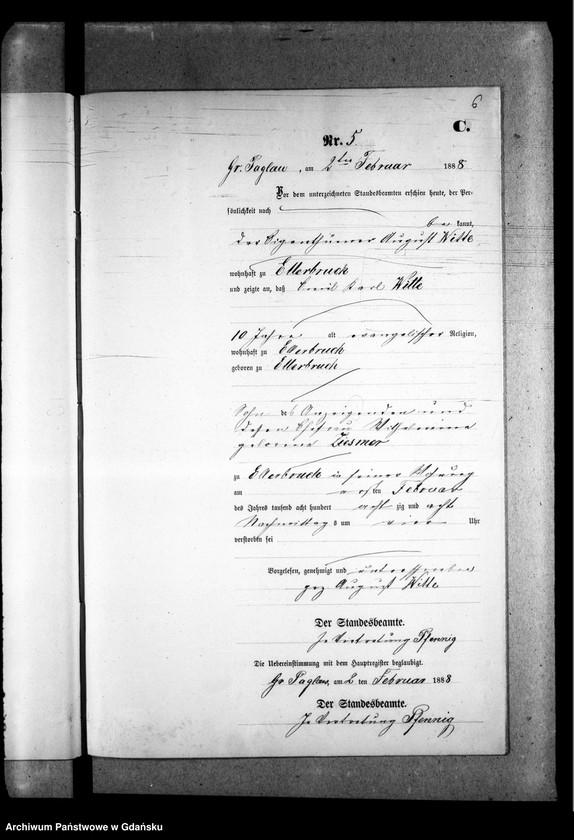 6
C.
Nr. 5.
Gr. Paglau, am 2ten Februar 1888
Vor dem unterzeichneten Standesbeamten erschien heute, der Per-
sönlichkeit nach
be kannt,
der Eigenthümer August Witte
wohnhaft zu Ellerbruch
und zeigte an, daß Emil Karl Witte
10 Jahre alt evangelischer Religion,
wohnhaft zu Ellerbruch
geboren zu Ellerbruch
Sohn des Anzeigenden und
dessen Ehefrau Wilhelmine
geborene Ziesmer
zu Ellerbruch in seiner Wohnung
am ersten Februar
des Jahres tausend acht hundert acht zig und acht
Nachmittag s um vier Uhr
verstorben sei
Vorgelesen, genehmigt und unterschrieben
gez August Witte
Der Standesbeamte.
In Vertretung Pfennig
Die Uebereinstimmung mit dem Hauptregister beglaubigt.
Gr Paglau, am 2 ten Februar 1888
Der Standesbeamte.
In Vertretung Pfennig
Archiwum Państwowe w Gdańsku